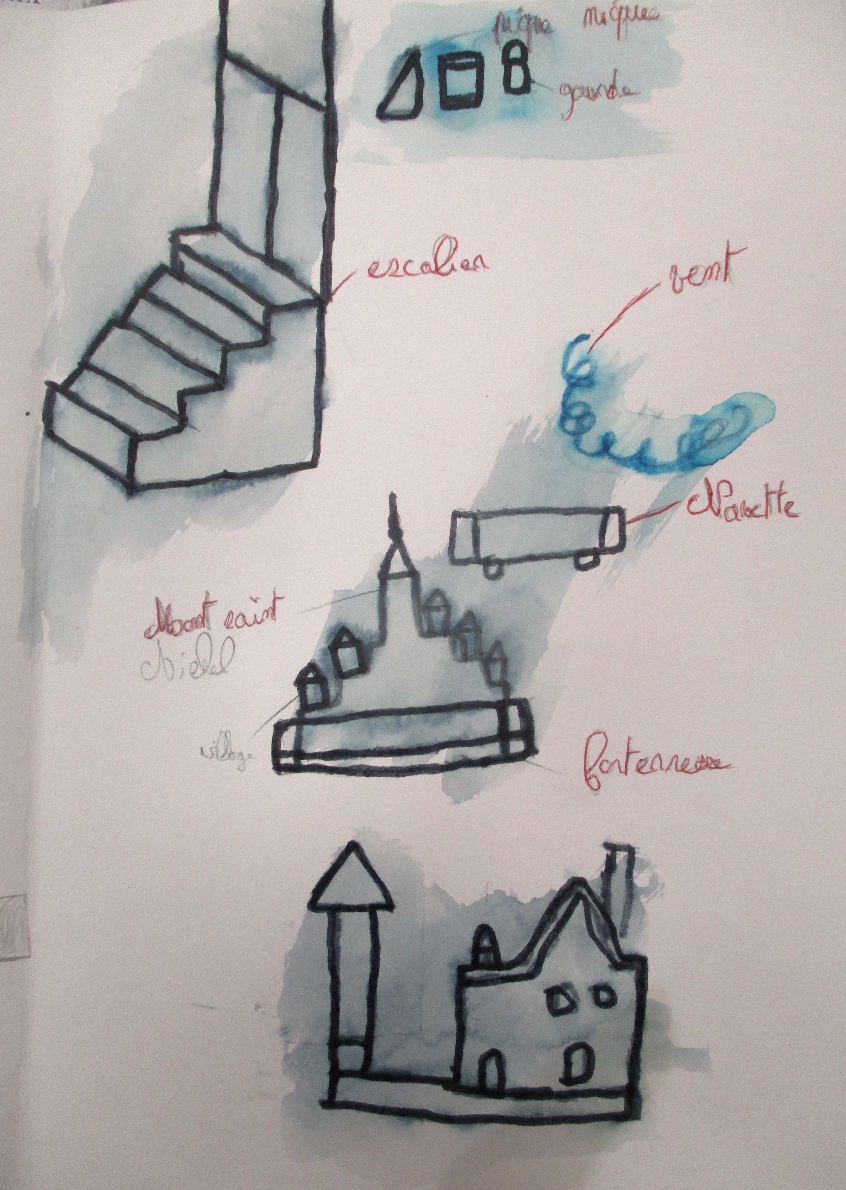 pique nique
gourde
escalier
vent
Navette
Mont saint
Michel
village
forterresse